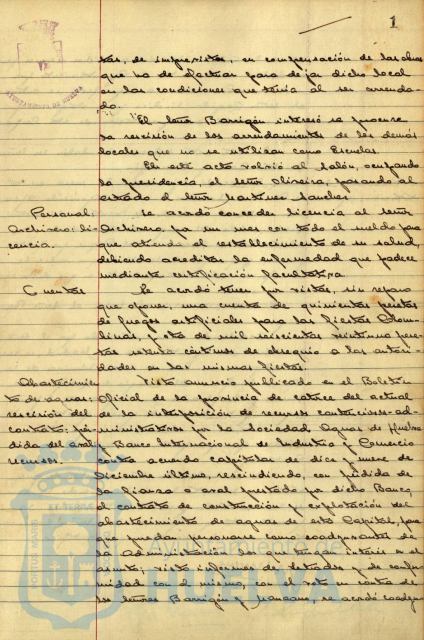 1
tas, de imprevistos, en compensación de las obras
que ha de efectuar para dejar dicho local
en las condiciones que tenía al ser arrenda-
do.
El señor Barrigón interesó se procure
la rescisión de los arrendamientos de los demás
locales que no se utilizan como Escuelas.
En este acto volvió al salón, ocupando
la presidencia, el señor Oliveira, pasando al
estrado el señor Martínez Sánchez
Personal:
Archivero: li-
cencia.
Se acordó conceder licencia al señor
Archivero, por un mes con todo el sueldo para
que atienda al restablecimiento de su salud,
debiendo acreditar la enfermedad que padece
mediante certificación facultativa
Cuentas
Se acordó tener por vistas, sin reparo
que oponer, una cuenta de quinientas pesetas
de fuegos artificiales para las fiestas Colom-
binas, y otra de mil seiscientas
setenta céntimos de obsequio a las autori-
dades en las mismas fiestas.
Abastecimien-
to de aguas:
rescisión del
contrato: pér-
dida del aval
recursos.
Visto anuncio publicado en el Boletín
Oficial de la provincia de catorce del actual
de la interposición de recursos contencioso-ad-
ministrativos por la Sociedad Aguas de Huelva
y Banco Internacional de Industria y Comercio
contra acuerdo capitular de diez y nueve de
Diciembre último, rescindiendo, con pérdida de
la fianza o aval prestado por dicho Banco,
el contrato de construcción y explotación del
abastecimiento de aguas de esta Capital, para
que puedan personarse como coadyuvantes de
la Administración los que tengan interés en el
asunto; visto informes de Letrados y de confor-
midad con el mismo, con el voto en contra de
los señores Barrigón y Manzano, se acordó coadyu-
PORTUS MARIS
HUELVA